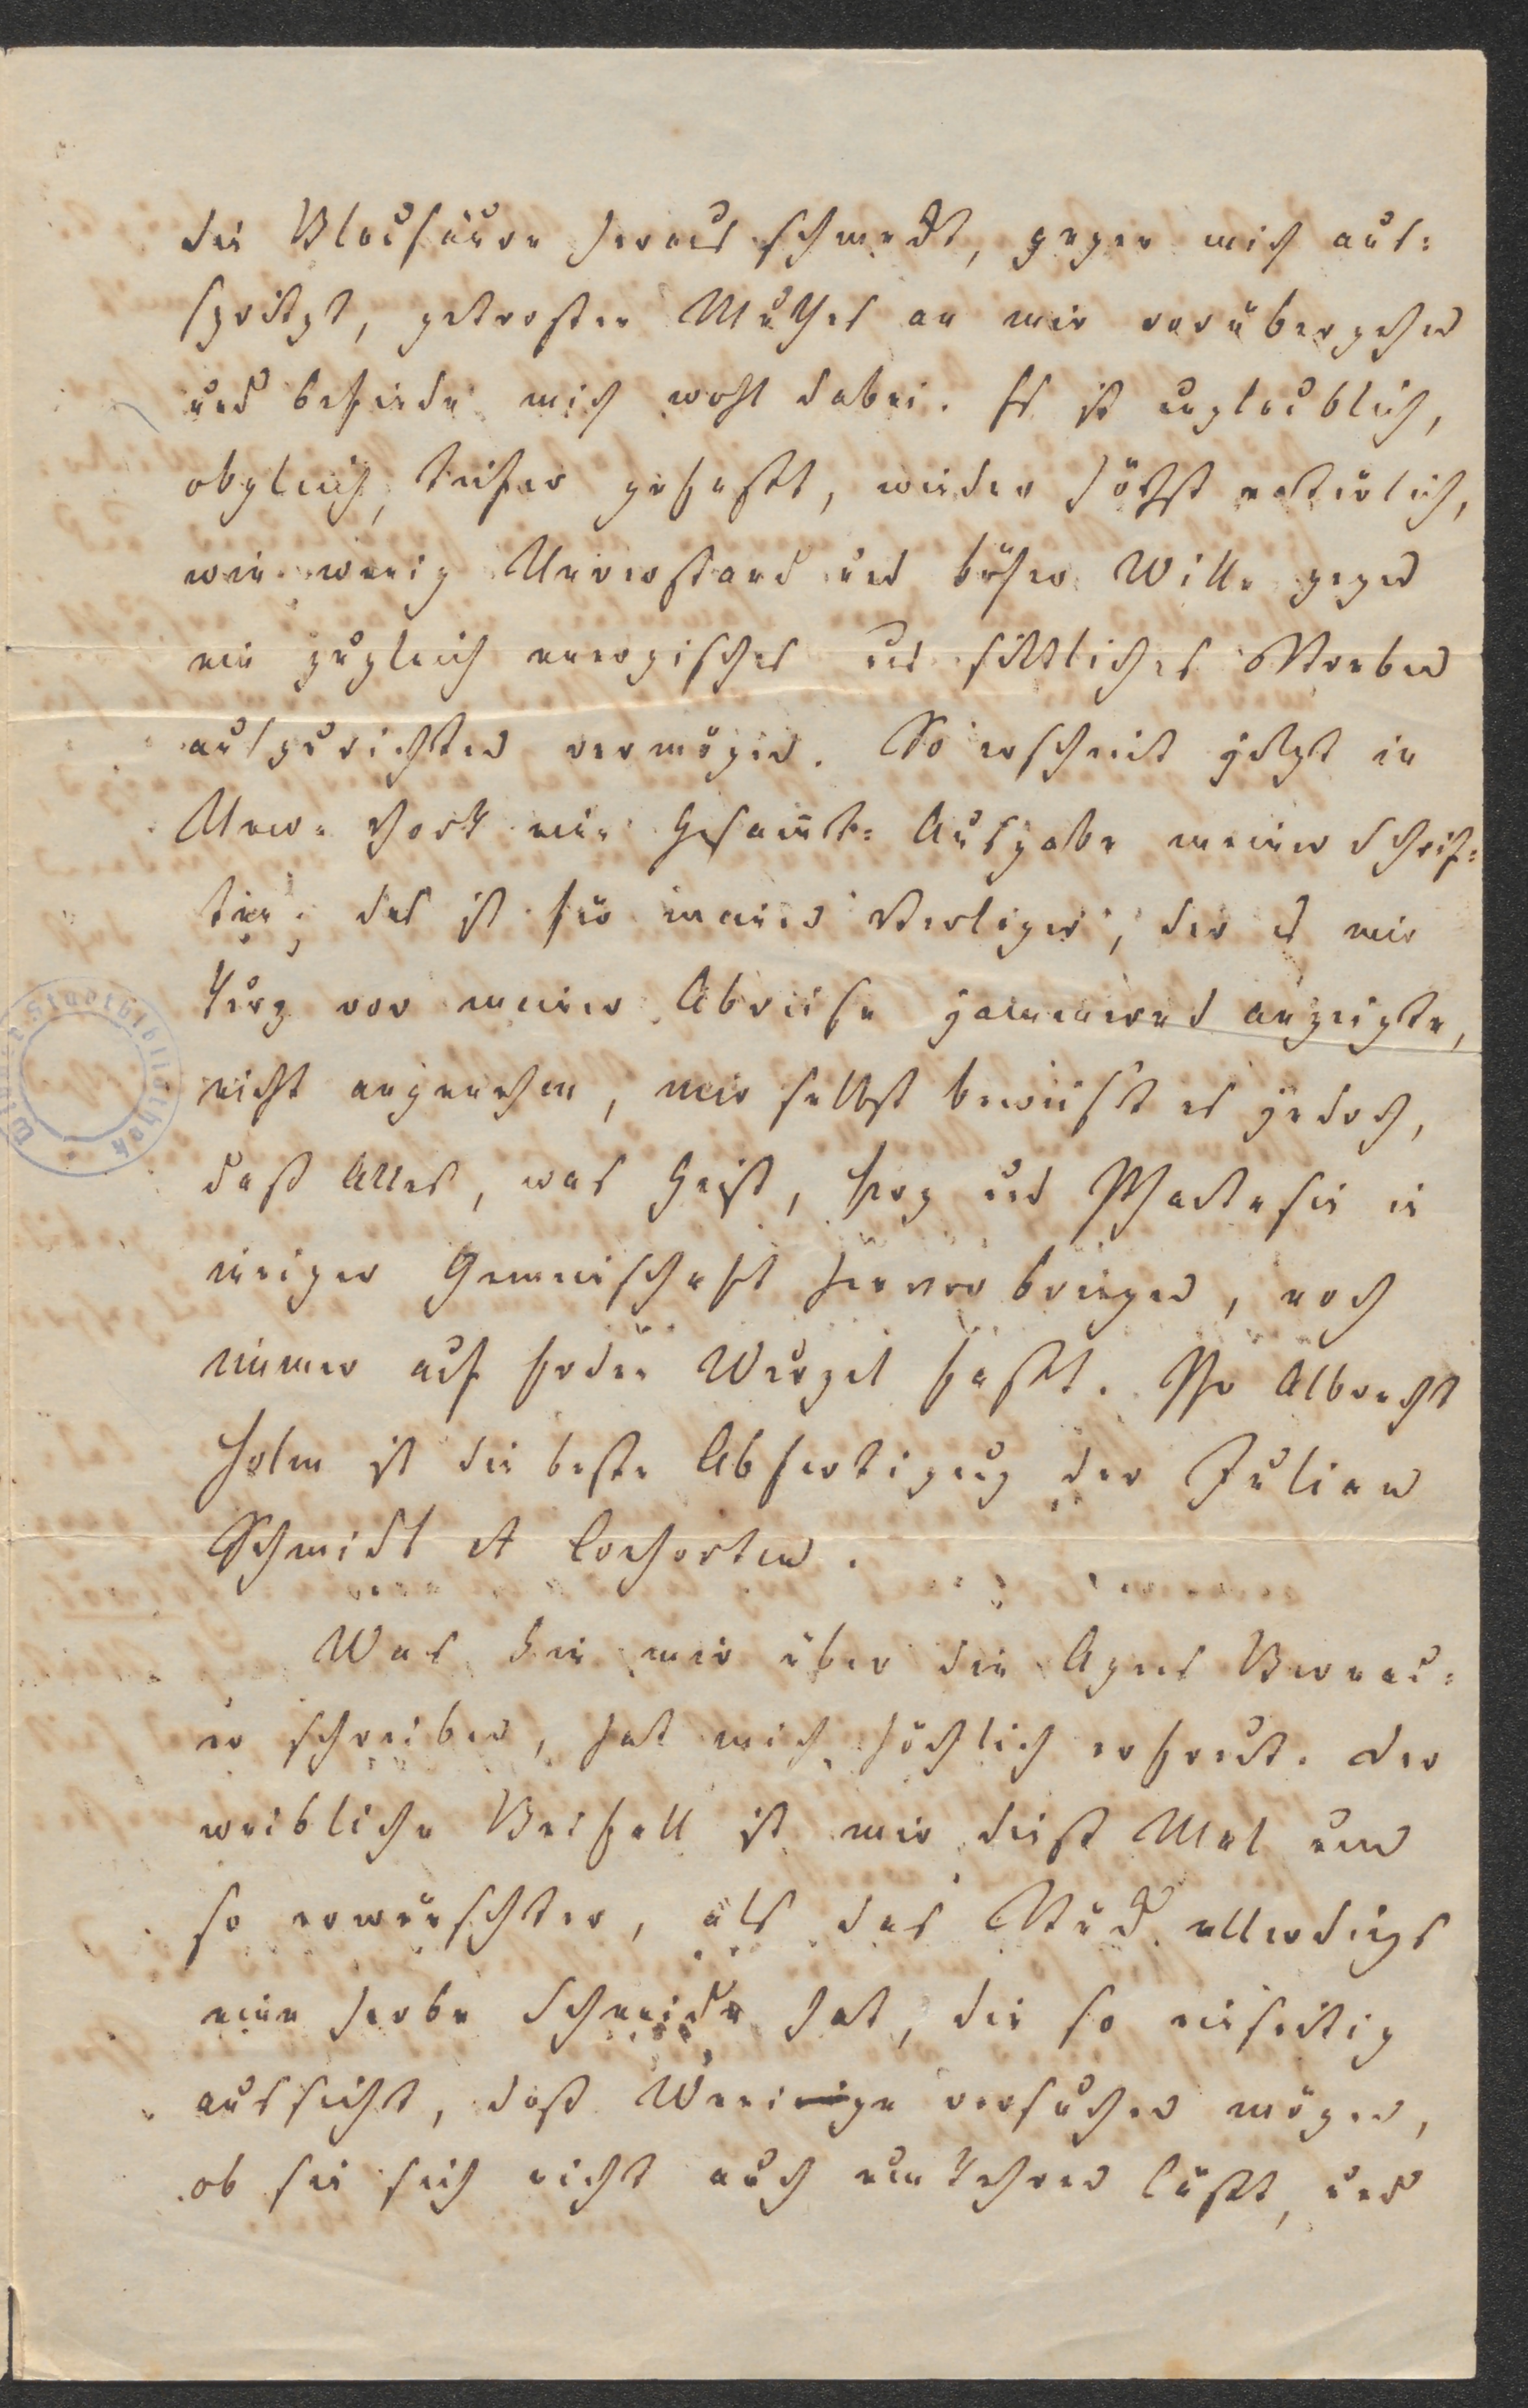 die Blausäure heraus schmeckt, gegen mich aus=
spritzt, getrosten Muthes an mir vorübergehen
und befinde mich wohl dabei. Es ist unglaublich,
obgleich, tiefer gefaßt, wieder höchst natürlich,
wie wenig Unverstand und böser Wille gegen
ein zugleich energisches und sittliches Streben
auszurichten vermögen. So erscheint jetzt in
New-York eine Gesammt=Ausgabe meiner Schrif=
ten; das ist für meinen Verleger, der es mir
kurz vor meiner Abreise jammernd anzeigte,
nicht angenehm, mir selbst beweis't es jedoch,
daß Alles, was Geist, Herz und Phantasie in
inniger Gemeinschaft hervor bringen, noch
immer auf Erden Wurzel faßt. Ihr Albrecht
Holm ist die beste Abfertigung der Julian
Schmidt et Consorten.
Was Sie mir über die Agnes Bernau=
er schreiben, hat mich höchlich erfreut. Der
weibliche Beifall ist mir dieß Mal um
so erwünschter, als das Stück allerdings
eine herbe Schneide hat, die so einseitig
aussieht, daß Wenige versuchen mögen,
ob sie sich nicht auch umkehren läßt, und
Wiener Stadtbibliothek